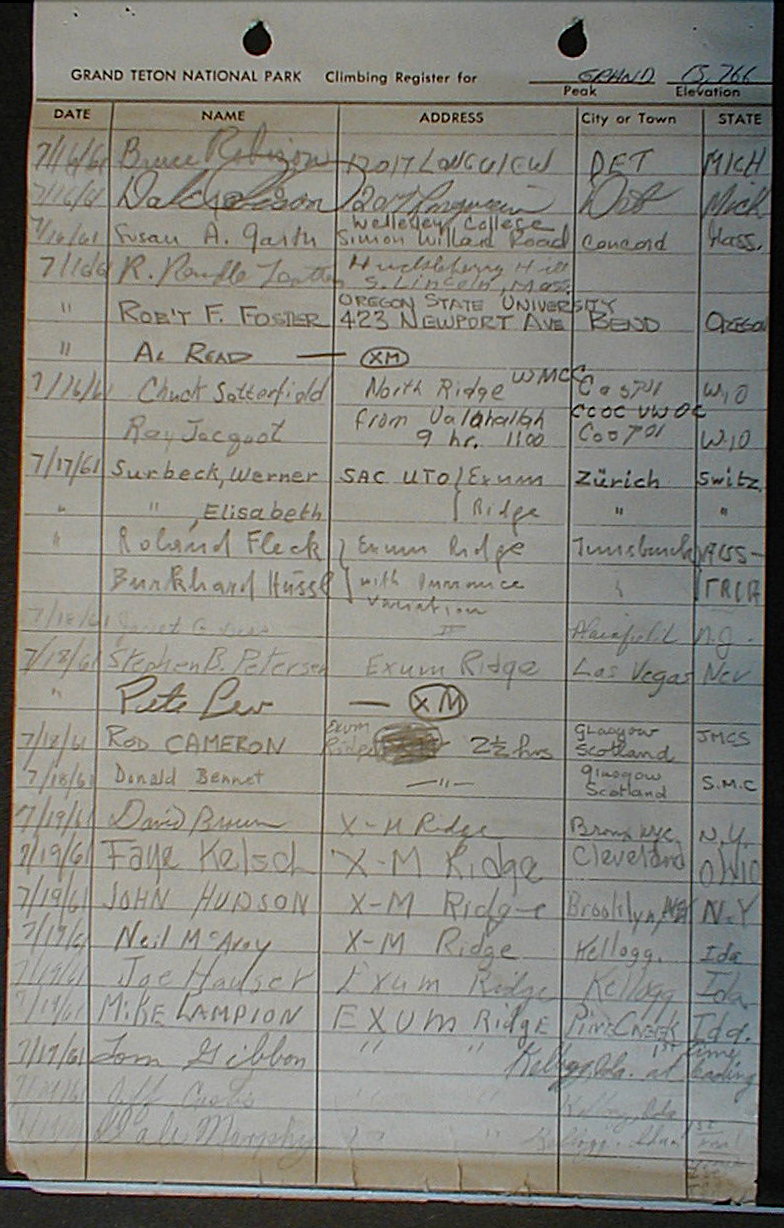 GRAND TETON NATIONAL PARK Climbing Register for GRAND 13,766
Peak Elevation
DATE NAME ADDRESS City or Town STATE
7/16/61 Bruce Robinson 12017 LONGVIEW DET MICH
7/16/61 Dale Det Mich
7/16/61 Susan A. Garth Wellesley College Simon Willard Road Concord Mass.
R. Huckleberry Hill S. Lincoln, Mass.
" ROB'T F. FOSTER OREGON STATE UNIVERSITY 423 NEWPORT AVE BEND OREGON
" AL READ — XM
7/16/61 Chuck Satterfield North Ridge WMCC
Ray Jacquot from Valahallah 9 hr. 1100
7/17/61 Surbeck, Werner SAC UTO Exum Zürich Switz.
" " , Elisabeth Ridge " "
" Roland Fleck Exum Ridge
Burkhard Hüssl with variation
7/18/61 Plainfield N.J.
7/18/61 Stephen B. Petersen Exum Ridge Las Vegas Nev
" Pete Lev — XM
7/18/61 ROD CAMERON Exum Ridge 2½ hrs GLASGOW Scotland JMCS
7/18/61 Donald Bennet —"— Glasgow Scotland S.M.C
7/19/61 David Brown X-M Ridge Bronx NYC N.Y.
7/19/61 Faye Kelsch X-M Ridge Cleveland OHIO
7/19/61 JOHN HUDSON X-M Ridge N.Y
7/19/61 Neil McAvoy X-M Ridge Kellogg. Ida
7/19/61 Joe Hauser Exum Ridge Kellogg Ida.
7/19/61 MIKE LAMPION EXUM Ridge PINE CREEK Ida.
7/19/61 Tom Gibbon " " Kellogg, Ida. 1st time at leading
" " Kellogg, Ida
Dale Murphy " " Kellogg.